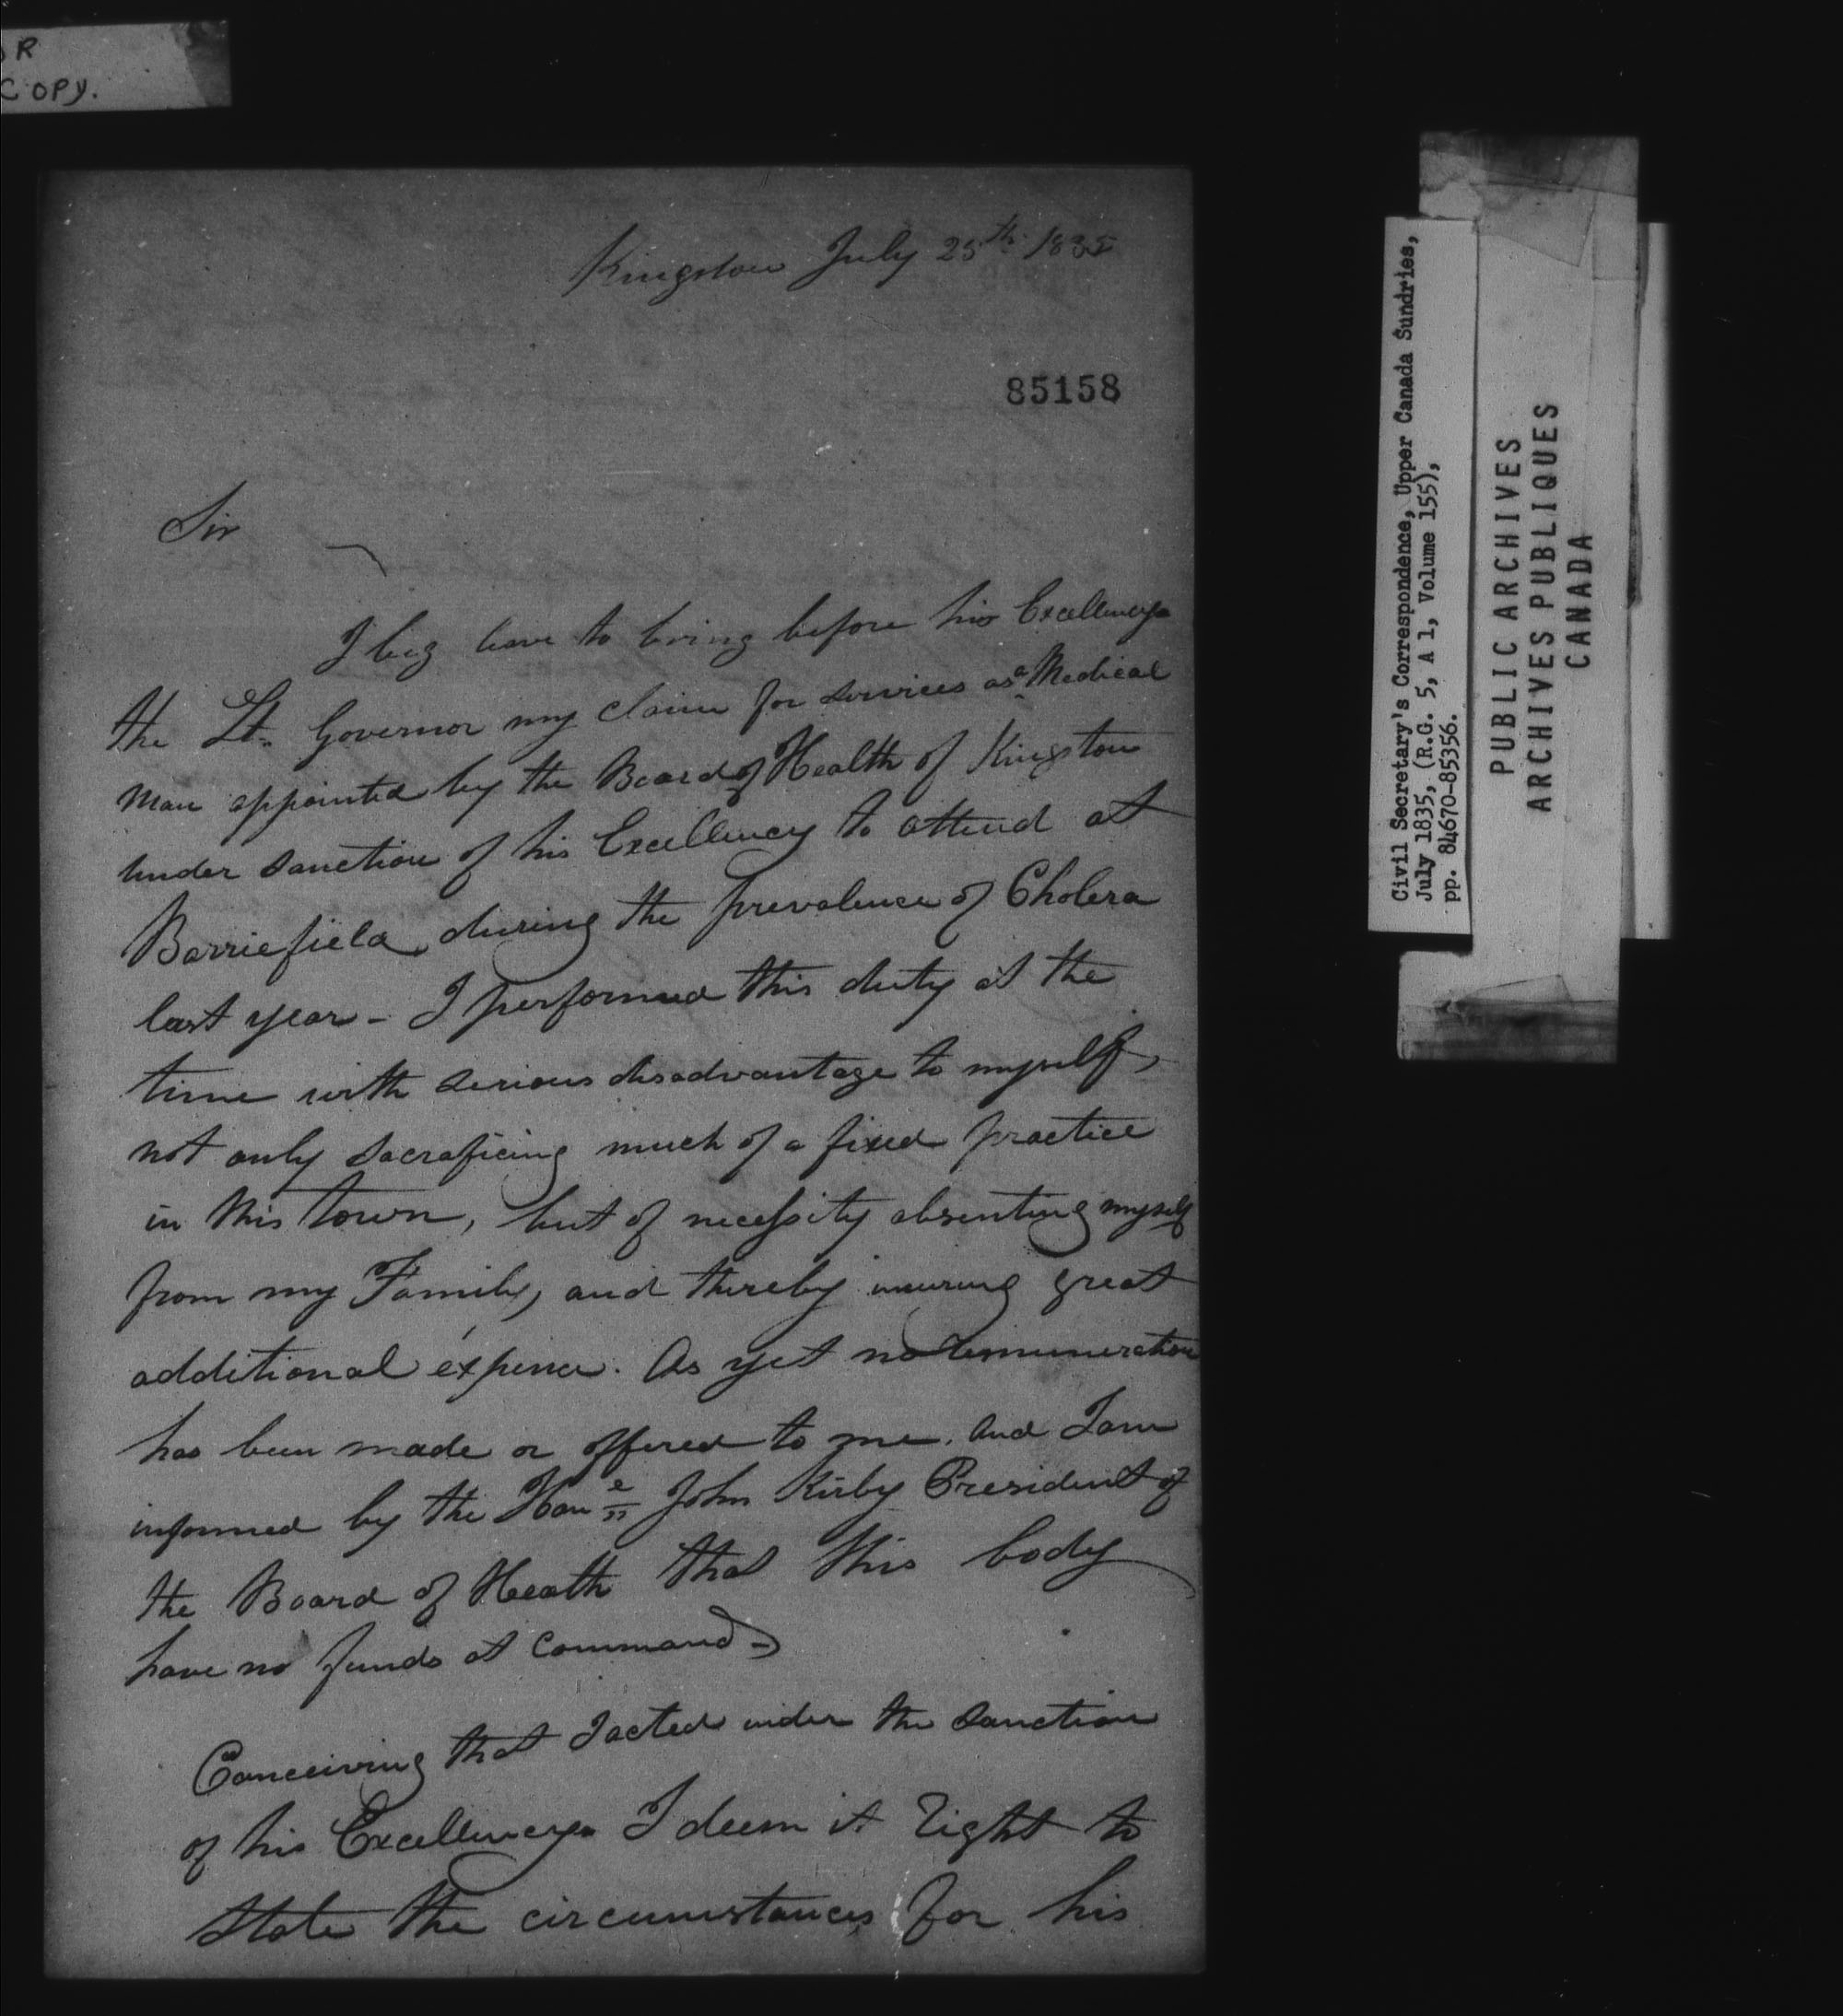 OR
COPY.
Kingston July 25th 1835
85158
Sir
I beg leave to bring before his Excellency
the Lt. Governor my claim for services as a Medical
Man appointed by the Board of Health of Kingston
under sanction of his Excellency to attend at
Barriefield, during the prevalence of Cholera
last year - I performed this duty at the
time with serious disadvantage to myself,
not only sacraficing much of a fixed practice
in this town, but of necessity absenting myself
from my Family, and thereby incuring great
additional expence. As yet no remuneration
has been made or offered to me. And I am
informed by the Hone John Kirby President of
the Board of Heath that this body
have no funds at command -
Conceiving that I acted under the sanction
of his Excellency I deem it right to
state the circumstances for his
Civil Secretary's Correspondence, Upper Canada Sundries,
July 1835, (R.G. 5, A 1, Volume 155),
pp. 84670-85356.
PUBLIC ARCHIVES
ARCHIVES PUBLIQUES
CANADA